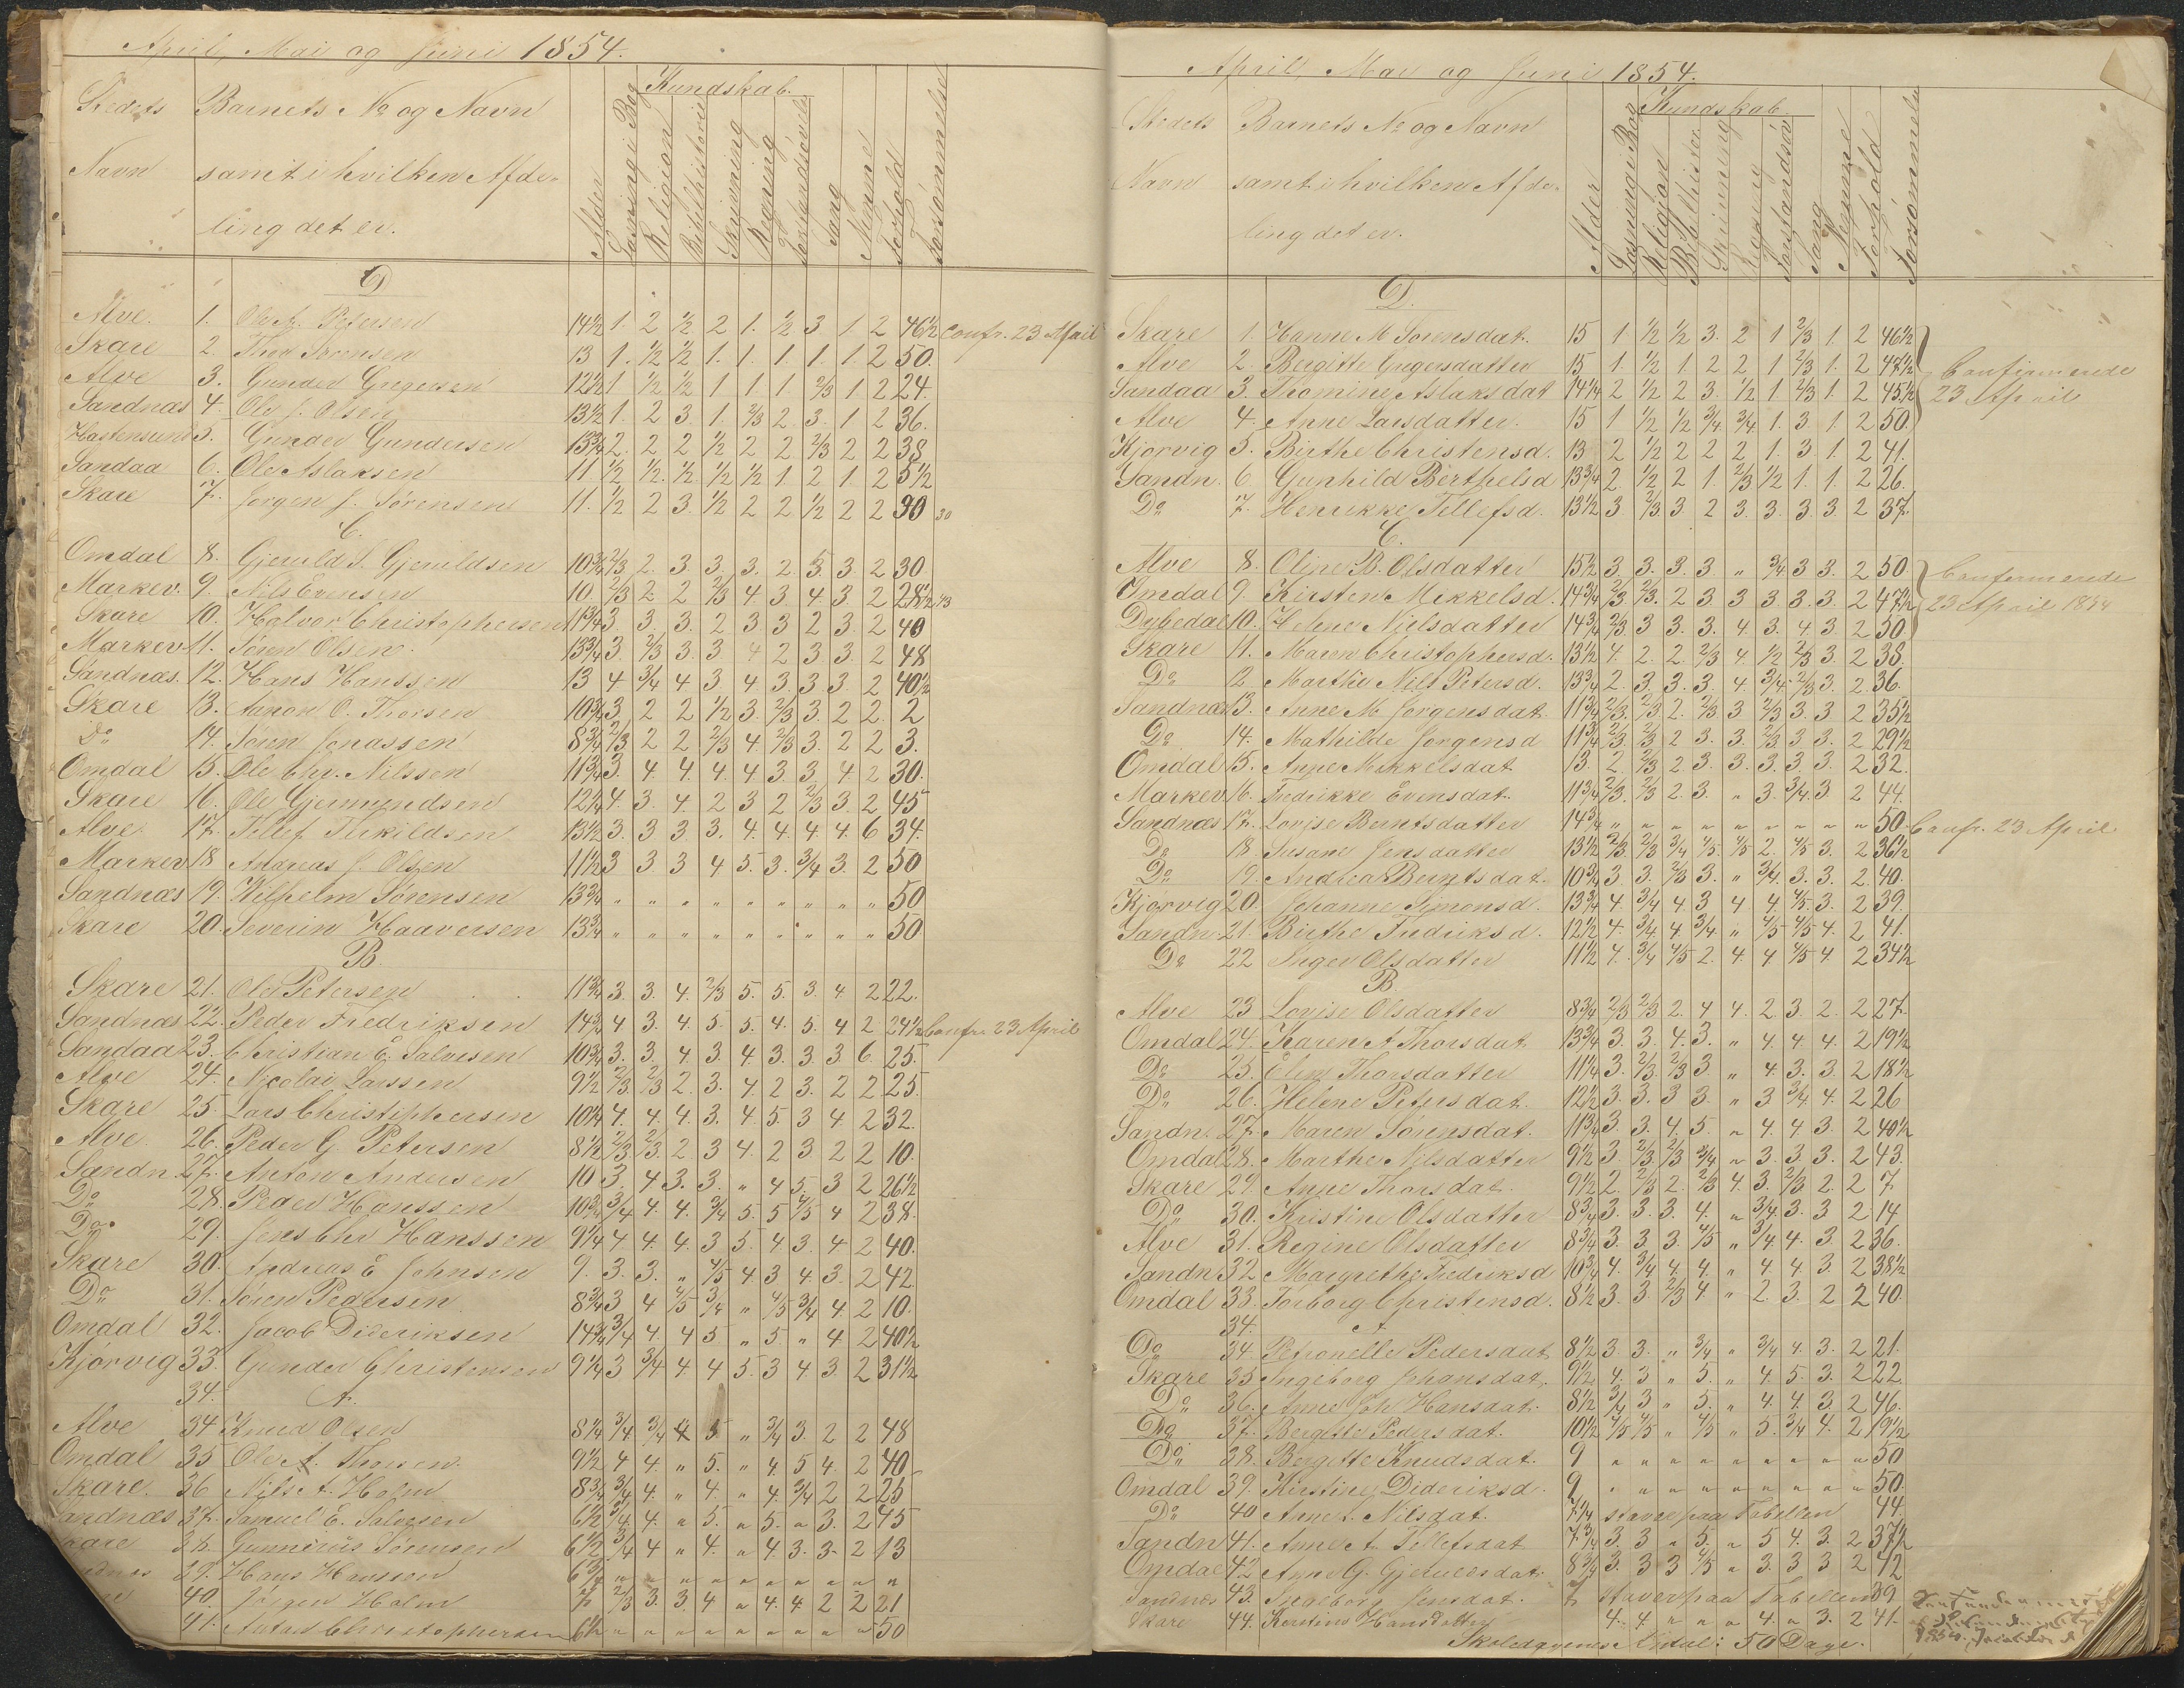 April, Mai og Juni 1854.
Stedets Navn
Barnets No og Navn
samt i hvilken Afde-
ling det er.
Alder
Læsning i Bog
Kundskab.
Religion
Bibelhistorie
Skrivning
Regning
Forstandsøvels
Sang
Nemme
Forhold
Forsømmelse
D
Alve. 1. Ole A. Petersen 14½ 1. 2 ½ 2 1. ½ 3 1. 2 46½ Confr. 23 April
Skare 2. Thor Sørensen 13 1. ½ ½ 1. 1. 1. 1. 1. 2 50.
Alve 3. Gunder Gregersen 12½ 1 ½ ½ 1 1 1. ⅔ 1 2 24.
Sandnæs 4. Ole J. Olsen 13½ 1. 2 3. 1. ⅔ 2. 3. 1 2 36.
Hastensund 5. Gunder Gundersen 13¾ 2. 2 2 ½ 2 2 ⅔ 2 2 38
Sandaa 6. Ole Aslaksen 11 ½ ½ ½ ½ ½ 1 2 1. 2 5½
Skare 7. Jørgen J. Sørensen 11. ½ 2 3. ½ 2 2 ½ 2 2 30 30
C.
Omdal 8. Gjeruld S. Gjeruldsen 10¾ ⅔ 2. 3. 3. 3. 2. 3. 3. 2 30.
Markev. 9. Nils Evensen 10. ⅔ 2 2 ⅔ 4. 3. 4. 3. 2 28½ 43
Skare 10. Halvor Christophersen 11¾ 3. 3. 3. 2 3 3 2 3. 2 40
Markev. 11. Søren Olsen 13¾ 3. ⅔ 3. 3 4 2 3 3. 2 48
Sandnæs. 12. Hans Hanssen 13 4 ¾ 4 3 4 3. 3 3. 2 40½
Skare 13. Aanon O. Thorsen 10¾ 3 2 2 ½ 3. ⅔ 3. 2 2. 2
Do 14. Søren Jonassen 8¾ ⅔ 2 2 ⅔ 4. ⅔ 3. 2 2 3.
Omdal 15. Ole Chr. Nilssen 11¾ 3. 4. 4. 4. 4 3. 3. 4 2 30.
Skare 16. Ole Gjermundsen 12¼ 4. 3. 4. 2 3 2 ⅔ 3. 2 45
Alve 17. Tellef Terkildsen 13½ 3. 3 3 3. 4. 4. 4. 4. 6 34.
Markev 18 Andreas J. Olsen 11½ 3 3 3 4 5. 3. ¾ 3. 2 50
Sandnæs 19. Wilhelm Sørensen 13¾ " " " " " " " " " 50
Skare 20. Severin Haaversen 13¾ " " " " " " " " " 50
B
Skare 21. Ole Petersen 11¾ 3. 3. 4. ⅔ 5. 5. 3. 4 2 22.
Sandnæs 22. Peder Fredriksen 14¾ 4 3. 4. 5. 5. 4. 5. 4 2 24½ Confr. 23 April
Sandaa 23. Christian E. Salvesen 10¾ 3. 3. 4. 3. 4. 3. 3. 3 6. 25.
Alve 24. Nicolai Larssen 9½ ⅔ ⅔ 2. 3. 4. 2 3. 2 2 25.
Skare 25. Lars Christophersen 10¼ 4. 4. 4. 3. 4. 5. 3 4 2 32.
Alve. 26. Peder G. Petersen 8½ ⅔ ⅔ 2. 3 4. 2 3 2 2 10.
Sandn. 27. Anton Andersen 10 3. 4 3. 3. " 4 5 3 2 26½
Do 28. Peder Hanssen 10¾ ¾ 4. 4. ¾ 5. 5 ⅘ 4 2 38.
Do 29. Jens Chr Hanssen 9¼ 4 4. 4. 3 5. 4 3. 4 2 40.
Skare 30. Andreas E Johnsen 9. 3. 3. " ⅘ 4. 3 4. 3. 2 42
Do 31. Søren Pedersen 8¾ 3 4 ⅘ ¾ " ⅘ ¾ 4 2 10.
Omdal 32. Jacob Dideriksen 14¾ ¾ 4. 4 5 " 5 " 4 2 40½
Kjørvig 33. Gunder Christensen 9¼ 3 ¾ 4. 4 5. 3 4. 3. 2 31½
34. A.
Alve 34 Knud Olsen 8¼ ¾ ¾ 4 5 " ¾ 3. 2 2 48
Omdal 35 Ole A. Thorsen. 9½ 4 4. " 5. " 4. 5 4. 2 40
Skare. 36 Nils A. Holm 8¾ ¾ 4. " 4. " 4. ¾ 2 2 25
Sandnæs 37. Samuel E. Salvesen 6½ ¾ 4. " 5. " 5. " 3. 2 45
Skare 38. Gunnerius Sørensen 6½ ¾ 4 " 4. " 4. 3. 3. 2 13
39. Hans Hanssen 6¾ " " " " " " " " " "
40. Jørgen Holm 7 ⅔ 3. 3. 4 " 4. 4. 2 2 21
41. Anton Christophersen 6½ " " " " " " " " " 50
April, Mai og Juni 1854.
Stedets Navn
Barnets No og Navn
samt i hvilken Afde-
ling det er.
Alder
Læsning i Bog
Kundskab.
Religion
Bibelhistor.
Skrivning
Regning
Forstandsøv.
Sang
Nemme
Forhold
Forsømmelse
D.
Skare 1. Hanne M Sørensdat. 15 1 ½ ½ 3. 2 1 ⅔ 1. 2 46½
Alve 2. Bergitte Gregersdatter 15 1. ½ 1. 2 2 1 ⅔ 1. 2 48½ Confirmerede
Sandaa 3. Thomine Aslaksdat 14¼ 2 ½ 2 3. ½ 1. ⅔ 1. 2 45½ 23 April
Alve 4. Anne Larsdatter. 15 1 ½ ½ ¾ ¾ 1. 3 1. 2 50.
Kjørvig 5. Birthe Christensd. 13 2 ½ 2 2 2 1. 3. 1. 2 41.
Sandn. 6. Gunhild Berthelsd 13¾ 2. ½ 2 1. ⅔ ½ 1. 1. 2 26.
Do 7. Henrikke Tellefsd. 13½ 3 ⅔ 3. 2 3. 3. 3. 3. 2 37.
C.
Alve 8. Oline B. Olsdatter 15½ 3. 3. 3. 3 " ¾ 3 3. 2 50. Confirmerede
Omdal 9. Kirsten Mekkelsd. 14¾ ⅔ ⅔ 2 3 3 3. 3. 3. 2 47½ 23 April 1854
Dybedal 10. Helene Nielsdatter 14¾ ⅔ 3 3. 3. 4. 3. 4 3. 2 50
Skare 11. Maren Christophersd. 13½ 4. 2. 2. ⅔ 4. ½ ⅔ 3. 2 38.
Do 12. Marthe Nils Petersd. 13¾ 2. 3. 3. 3. 4. ¾ ⅔ 3. 2. 36.
Sandnæs 13. Anne M Jørgensdat. 11¾ ⅔ ⅔ 2. ⅔ 3 ⅔ 3. 3 2 35½
Do 14. Mathilde Jørgensd 11¾ ⅔ ⅔ 2 3. 3. ⅔ 3 3. 2 29½
Omdal 15. Anne Mekkelsdat 13. 2. ⅔ 2 3. 3. 3. 3. 3. 2 32.
Markev. 16. Fredrikke Evensdat. 11¾ ⅔ ⅔ 2. 3. " 3. ¾ 3. 2 44.
Sandnæs 17. Lovise Berntsdatter 14¾ " " " " " " " " " 50. Confr. 23 April
Do 18. Susane Jensdatter 13½ ⅔ ⅔ ¾ ⅘ ⅘ 2. ⅘ 3. 2 36½
Do 19. Andrea Berntsdat. 10¾ 3. 3. ⅔ 3. " ¾ 3. 3. 2. 40.
Kjørvig 20. Johanne Simonsd. 13¾ 4. ¾ 4 3 4 4 ⅘ 3. 2 39.
Sandn. 21. Birthe Fredriksd. 12½ 4. ¾ 4. ¾ " ⅘ ⅘ 4. 2 41.
Do 22 Inger Olsdatter 11½ 4. ¾ ⅘ 2. 4. 4 ⅘ 4 2 34½
B.
Alve 23 Lovise Olsdatter 8¾ ⅔ ⅔ 2. 4 4. 2 3. 2. 2 27.
Omdal 24. Karen A Thorsdat. 13¾ 3. 3. 4. 3. " 4. 4 4. 2 19½
Do 25. Elen Thorsdatter 11¼ 3. ⅔ ⅔ 3 " 4. 3. 3. 2 18½
Do 26. Helene Petersdat. 12½ 3. 3. 3 3. " 3 ¾ 4. 2 26
Sandn. 27. Maren Sørensdat. 11¾ 3 3. 4. 5. " 4. 4 3. 2 40½
Omdal 28. Marthe Nilsdatter 9½ 3. ⅔ ⅔ ¾ " 3. 3. 3. 2 43.
Skare 29. Anne Thorsdat. 9½ 2. ⅔ 2. ⅔ 4. 3. ⅔ 2. 2 7.
Do 30. Kristine Olsdatter 8¾ 3. 3. 3. 4. " ¾ 3. 3 2 14
Alve 31. Regine Olsdatter 8¾ 3. 3. 3. ⅘ " ¾ 4. 3. 2 36.
Sandn 32 Margrethe Fredriksd 10¾ 4. ¾ 4. 4. " 4. 4. 3. 2 38½
Omdal 33. Torborg Christensd. 8½ 3. 3. ⅔ 4. " 2. 3. 2 2 40.
34. A.
Do 34. Petronelle Pedersdat 8½ 3. 3. " ¾ " ¾ 4. 3. 2 21.
Skare 35 Ingeborg Johansdat. 9½ 4. 3 " 5. " 4. 5. 3. 2 22.
Do 36. Anne Joh Hansdat. 8½ ¾ 3 " 5. " 4. 4. 3. 2 46.
Do 37. Bergitte Pedersdat. 10½ ⅘ ⅘ " ⅘ " 5. ¾ 4. 2 19½
Do 38. Bergitte Knudsdat. 9 " " " " " " " " " 50
Omdal 39. Kirstine Dideriksd. 9 " " " " " " " " " 50.
Do 40 Anne S. Nilsdat. 7¼ staver paa Tabellen 44.
Sandn 41. Anne A. Tellefsdat 7¾ 3. 3 " 5. " 5 4. 3. 2 37½
Omdal 42 Anne G. Gjeruldsdat. 8¾ 3. 3 3 ⅘ " 3. 3 3 2 42
Sandnæs 43. Ingeborg Jensdat. 7 staver paa Tabellen 39
Skare 44. Kirstine Hansdatter 4. 4 " " " 4. " 3. 2 41.
Skoledagenes Antal: 50 Dage.